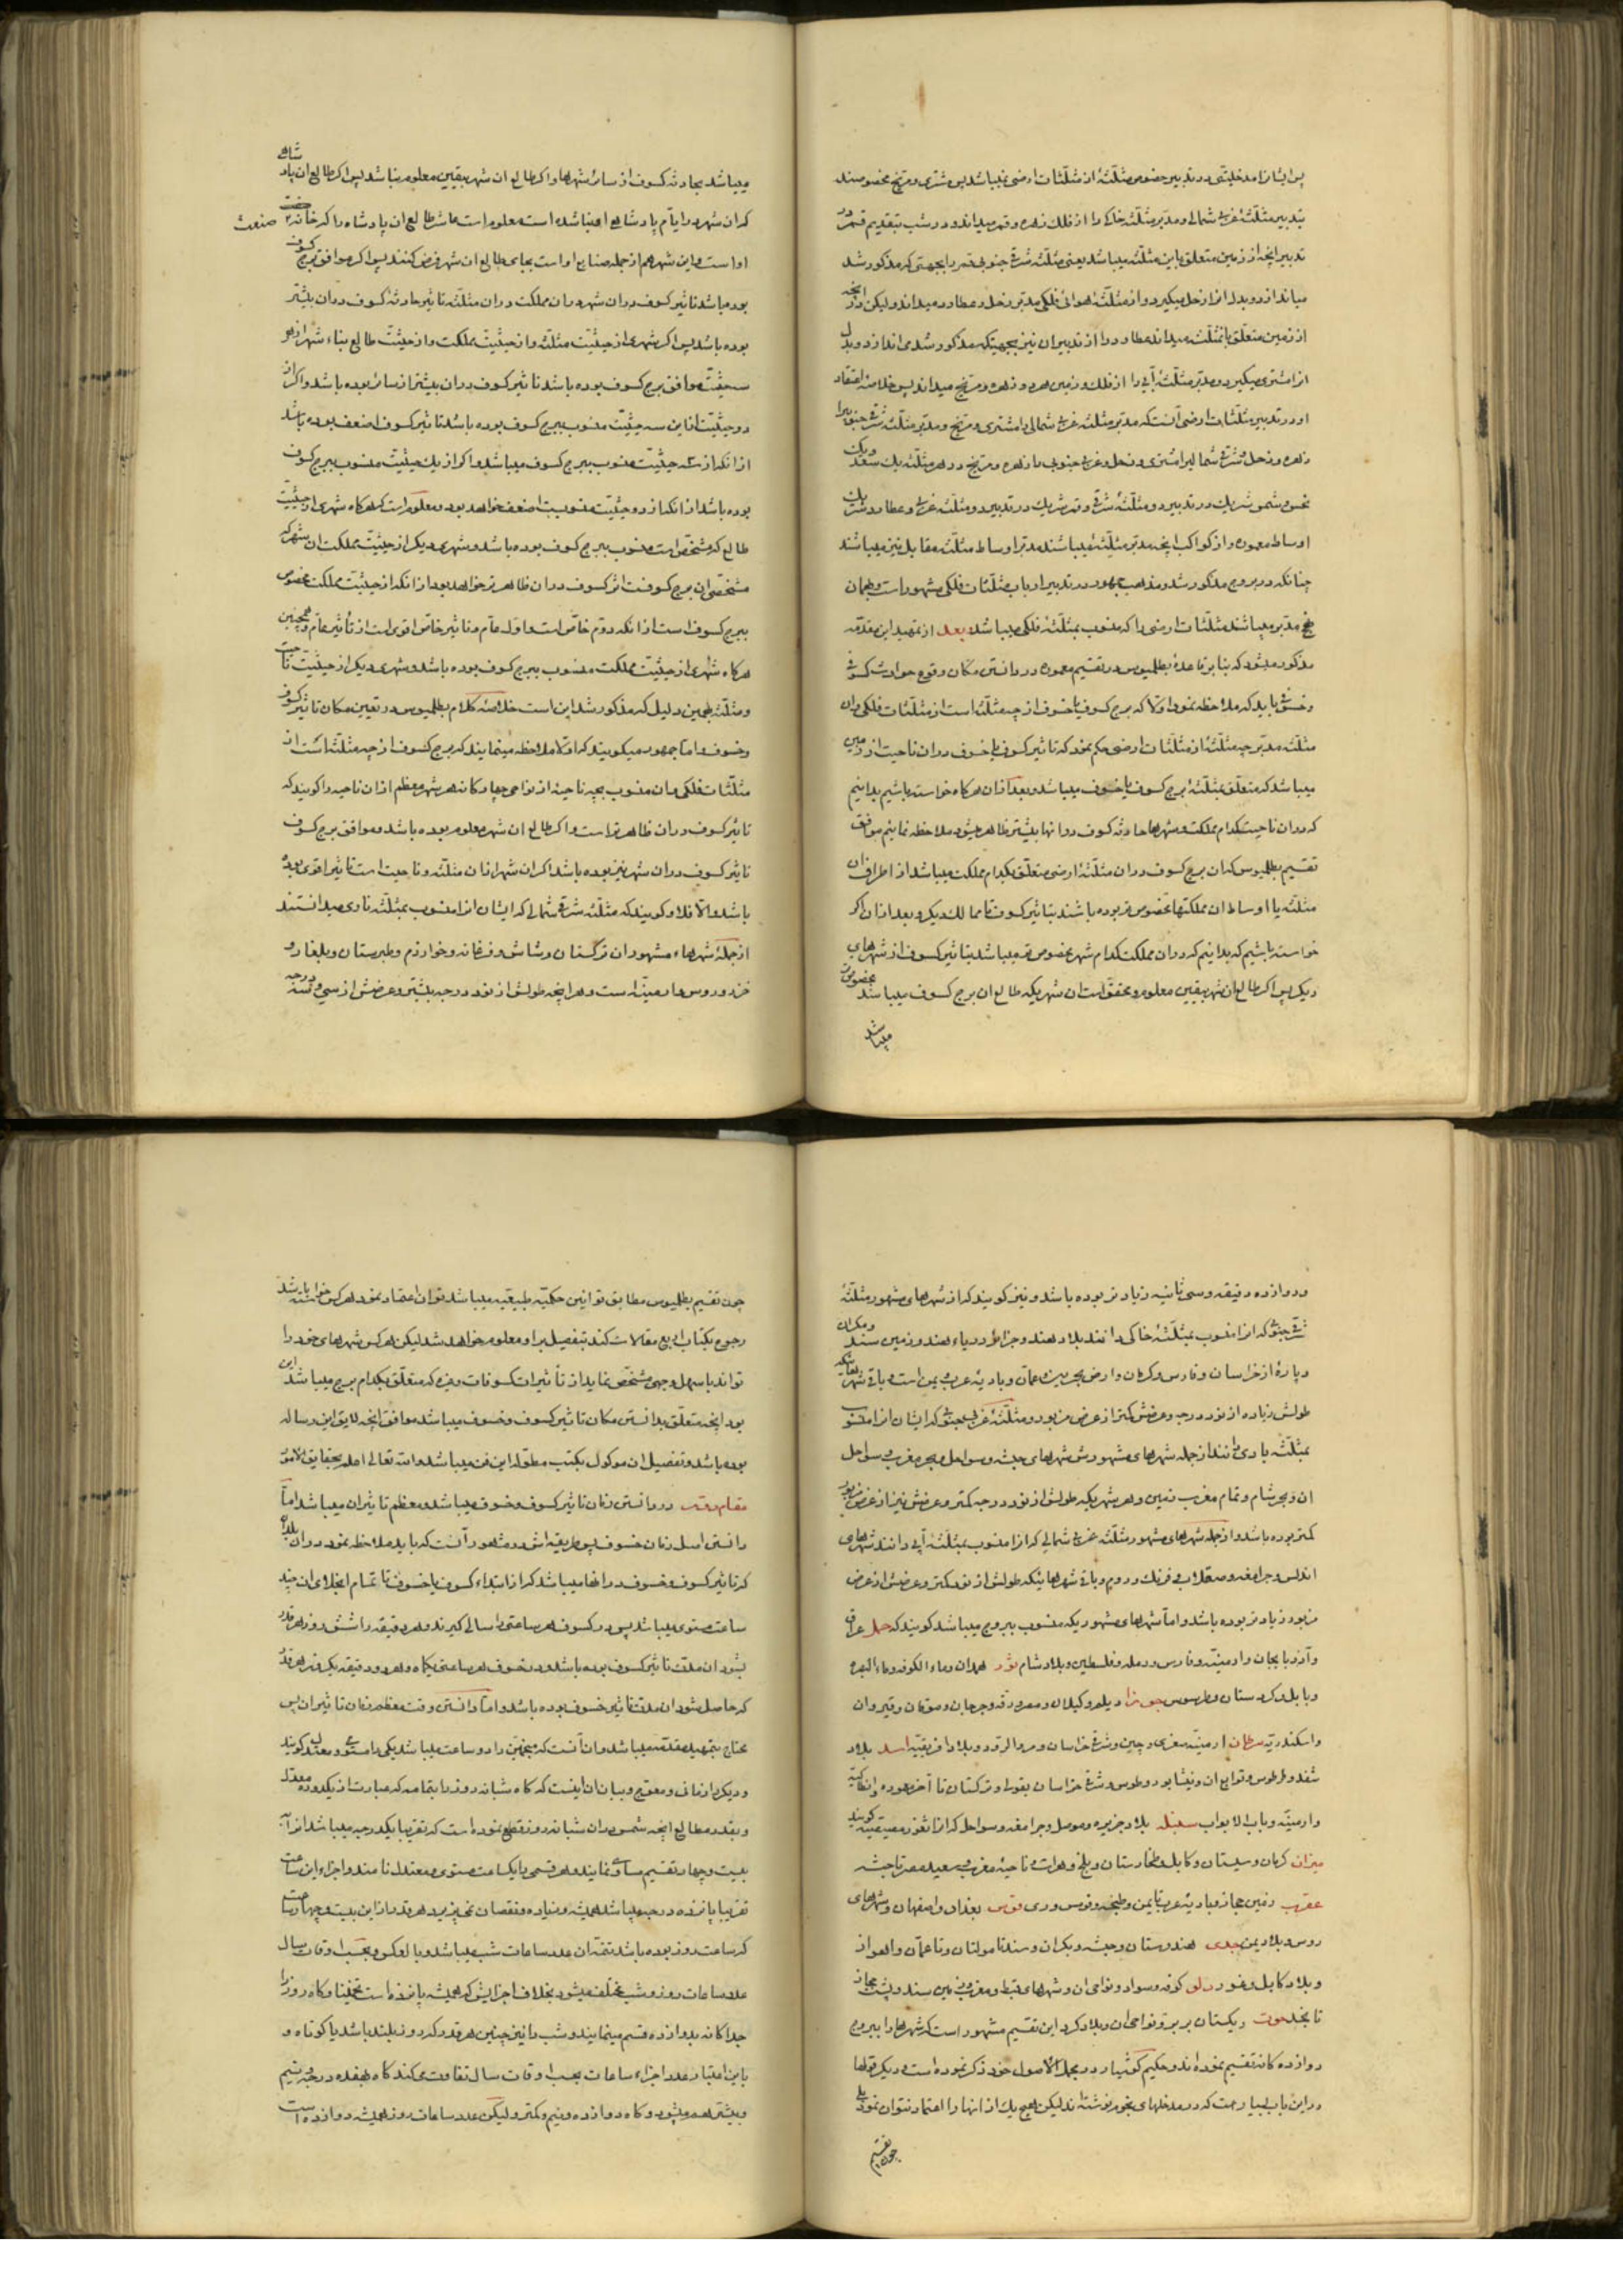 پس ایشان را مدخلیتی در تدبیر خصوص مثلثهٔ از مثلثات ارضی نمیباشد پس مشتری و مریخ مخصوصند
بتدبیر مثلثهٔ غربی شمالی و مدبر مثلثه خاکی را از فلک زهره و قمر میداند و در شب بتقدیم قمر و در
تدبیر انچه از زمین متعلق باین مثلثه میباشد یعنی مثلثه شرقی جنوبی قمر را بجهتی که مذکور شد
میاندازد و بدل از ان زحل میگیرد و از مثلثهٔ هوائی فلکی مدبر زحل و عطارد میداند و لیکن در انچه
از زمین متعلق بانمثلثه میداند عطارد را از تدبیر ان نیز بجهتیکه مذکور شد می اندازد و بدل
از ان مشتری میگیرد و مدبر مثلثهٔ آبی را از فلک و زمین هر دو زهره و مریخ میداند پس خلاصهٔ اعتقاد
او در تدبیر مثلثات ارضی آنست که مدبر مثلثه غربی شمالی را مشتری و مریخ و مدبر مثلثه شرقی جنوبیرا
زهره و زحل و شرقی شمالیرا مشتری و زحل و غربی جنوبی را زهره و مریخ و در هر مثلثه یک سعد و یک
نحس و شمس شریک در تدبیر دو مثلثهٔ شرقی و قمر شریک در تدبیر دو مثلثه غربی و عطارد شریک
اوساط معموره و از کواکب انچه مدبر مثلثهٔ میباشند مدبر اوساط مثلثه مقابل نیز میباشند
چنانکه در بروج مذکور شد و مذهب جمهور در تدبیر ارباب مثلثات فلکی مشهور است و همان
مدبر میباشند مثلثات ارضی را که منسوب بمثلثهٔ فلکی میباشد بعد از تمهید این مقدمه
مذکور میشود که بنابر قاعدهٔ بطلمیوس در تقسیم معموره در دانستن مکان وقوع حوادث کسوفی
و خسوفی باید که ملاحظه نمود اولا که برج کسوف یا خسوف از چه مثلثه است از مثلثات فلکی و ان
مثلثه مدبر چه مثلثهٔ از مثلثات ارضی حکم نمود که تاثیر کسوف یا خسوف دران ناحیت از زمین
میباشد که متعلق بمثلثهٔ برج کسوف یا خسوف میباشد و بعد از ان هرگاه خواسته باشیم بدانیم
که دران ناحیت کدام مملکت و شهرها حادثه کسوف در انها بیشتر ظاهر میشود ملاحظه نمائیم موافق
تقسیم بطلمیوس که ان برج کسوف دران مثلثهٔ ارضی متعلق بکدام مملکت میباشد از اطراف ان
مثلثه یا اوساط ان مملکتها مخصوص تر بوده باشند بتاثیر کسوف تا ممالک دیگر و بعد از ان اگر
خواسته باشیم که بدانیم که دران مملکت کدام شهر مخصوص تر میباشد بتاثیر کسوف از شهرهای
دیگر پس اگر طالع ان شهر بیقین معلوم و محقق است ان شهریکه طالع ان برج کسوف میباشد مخصوص تر
میباشد
میباشد بحادثه کسوف از سائر شهرها و اگر طالع ان شهر بیقین معلوم نباشد پس اگر طالع ان پادشاهی
که ان شهر در ایام پادشاهی او بنا شده است معلوم است عاشر طالع ان پادشاه را که خانهٔ صنعت
اوست و این شهر هم از جمله صنایع اوست بجای طالع ان شهر فرض کنند پس اگر موافق برج کسوف
بوده باشد تاثیر کسوف دران شهر و ان مملکت و دران مثلثه تاثیر حادثهٔ کسوف دران بیشتر
بوده باشد پس اگر شهری از حیثیت مثلثه و از حیثیت مملکت و از حیثیت طالع بناء شهر از هر
سه حیثیت موافق برج کسوف بوده باشد تاثیر کسوف دران بیشتر از سائر بوده باشد و اگر از
دو حیثیت از این سه حیثیت منسوب ببرج کسوف بوده باشد تاثیر کسوف اضعف بوده باشد
از انکه از سه حیثیت منسوب ببرج کسوف میباشد و اگر از یک حیثیت منسوب ببرج کسوف
بوده باشد از انکه از دو حیثیت منسوبست اضعف خواهد بود و معلوم است که هرگاه شهری از حیثیت
طالع که مشخص است منسوب ببرج کسوف بوده باشد و شهری دیگر از حیثیت مملکت ان شهر که
مشخص ان برج کسوفست اثر کسوف دران ظاهرتر خواهد بود از انکه از حیثیت مملکت مخصوص
ببرج کسوف است از انکه دوم خاص است و اول عام و تاثیر خاص اقوی است از تاثیر عام و همچنین
هرگاه شهری از حیثیت مملکت منسوب ببرج کسوف بوده باشد و شهری دیگر از حیثیت ناحیت
و مثلثه بهمین دلیل که مذکور شد این است خلاصهٔ کلام بطلمیوس در تعیین مکان تاثیر کسوف
و خسوف و اما جمهور میگویند که اولا ملاحظه مینمایند که برج کسوف از چه مثلثه است از
مثلثات فلکی و ان منسوب بچه ناحیهٔ از نواحی چهارگانه هر شهر معظم از ان ناحیه را گویند که
تاثیر کسوف دران ظاهرتر است و اگر طالع ان شهر معلوم بوده باشد و موافق برج کسوف
تاثیر کسوف دران شهر نیز بوده باشد اگر ان شهر از ان مثلثه و ناحیت است تاثیر اقوی بوده
باشد و الا فلا و گویند که مثلثه شرقی شمالی که ایشان انرا منسوب بمثلثه ناری میدانستند
از جملهٔ شهرهاء مشهور ان ترکستان و شاش و فرغانه و خوارزم و طبرستان و بلغار و
خزر و روس و ارمینه است و هر انچه طولش از نود درجه بیشتر و عرضش از سی و سه درجه
و دوازده دقیقه و سی ثانیه زیادتر بوده باشد و نیز گویند که از شهرهای مشهور مثلثهٔ
شرقی جنوبی که انرا منسوب بمثلثهٔ خاکی دانند بلاد هند و جزائر دریاء هند و زمین سند و مکران
و پارهٔ از خراسان و فارس و کرمان و ارض بحرین و عمان و بادیهٔ عرب و یمن است و باقی شهرهائیکه
طولش زیاده از نود درجه و عرضش کمتر از عرض مزبور و مثلثهٔ غربی جنوبی که ایشان انرا منسوب
بمثلثه بادی دانند از جمله شهرهای مشهورش شهرهای حبشه و سواحل بحر مغرب و سواحل
ان و بحر شام و تمام مغرب زمین و هر شهریکه طولش از نود درجه کمتر و عرضش نیز از عرض مزبور
کمتر بوده باشد و از جمله شهرهای مشهور مثلثه غربی شمالی که انرا منسوب بمثلثهٔ آبی دانند شهرهای
اندلس و جرامقه و صقلاب و فرنک و روم و باقی شهرهائیکه طولش از نود کمتر و عرضش از عرض
مزبور زیادتر بوده باشد و اما شهرهای مشهوریکه منسوب ببروج میباشد گویند که حمل عراق
و آذربایجان و ارمینه و فارس و رمله و فلسطین و بلاد شام ثور همدان و ماء الکوفه و ماء البصره
و بابل و کردستان و طرسوس جوزا دیلم و گیلان و مصر و برقه و جرجان و موقان و قیروان
و اسکندریه سرطان ارمینه صغری و چین و شرقی خراسان و مرو الرود و بلاد افریقیه اسد بلاد
سغد و طرطوس و توابع ان و نیشابور و طوس و شرقی خراسان بغور و ترکستان تا آخر معموره و انطاکیه
و ارمینه و باب الابواب سنبله بلاد جزیره و موصل و جرامقه و سواحل که انرا ثغور گویند
میزان کرمان و سیستان و کابل و طخارستان و بلخ و هرات و ناحیهٔ مغرب و صعید مصر تا حبشه
عقرب زمین حجاز و بادیه عرب تا یمن و طنجه و قومس و ری قوس بغداد و اصفهان و شهرهای
روس و بلاد یمن جدی هندوستان و حبشه و مکران و سند تا مولتان و تا عمان و اهواز
و بلاد کابل و غور دلو کوفه و سواد و نواحی ان و شهرهای قبط و مغرب زمین سند و پشت حجاز
تا نجد حوت ریکستان بربر و نواحی ان و بلاد کرد این تقسیم مشهور است که شهرها را ببروج
دوازده گانه تقسیم نموده اند و حکیم کوشیار در مجمل الاصول خود ذکر نموده است و دیگر قولها
در این باب بسیار است که در مدخلهای نجوم نوشته اند لیکن هیچ یک از انها را اعتماد نتوان نمود
تقسیم
چون تقسیم بطلمیوس مطابق قوانین حکمیه طبیعیه میباشد توان اعتماد نمود هر کس خواسته باشد
رجوع بکتاب اربع مقالات کند تفصیل برا و معلوم خواهد شد لیکن هر کس شهرهای خود را
تواند باسهل وجهی مشخص نماید از تاثیرات کسوفات و غیره که متعلق بکدام برج میباشد این
بود انچه متعلق بدانستن مکان تاثیر کسوف و خسوف میباشد موافق انچه لایق این رساله
بوده باشد و تفصیل ان موکول بکتب مطوله این فن میباشد و الله تعالی اعلم بحقایق الامور
مقام در دانستن زمان تاثیر کسوف و خسوف میباشد و معظم تاثیر ان میباشد اما
دانستن اصل زمان خسوف پس طریقه اش مشهور آنست که باید ملاحظه نمود دران بلده
که تاثیر کسوف و خسوف در انها میباشد که از ابتداء کسوف یا خسوف تا تمام انجلای ان چند
ساعت مستوی میباشد پس در کسوف هر ساعتی را سالی گیرند و هر دقیقه را شش روز هر قدر
بشود ان مدت تاثیر کسوف بوده باشد و در خسوف هر ساعتی یکماه و هر دو دقیقه یک روز هر قدر
که حاصل شود ان مدت تاثیر خسوف بوده باشد و اما دانستن وقت معظم زمان تاثیر ان پس
محتاج بتمهید مقدمه میباشد و ان آنست که منجمین را دو ساعت میباشد یکی را مستوی و معتدل گویند
و دیگر را زمانی و معوج و بیان ان اینست که گاه شبانه روز را بتمامه که عبارت از یک دوره معدل
و بقدر مطالع انچه شمس دران شبانه روز قطع نموده است که تقریبا یکدرجه میباشد انرا به
بیست و چهار تقسیم مساوی نمایند و هر قسمی را یکساعت مستوی و معتدل نامند و اجزاء این ساعت
تقریبا پانزده درجه میباشد همیشه و زیاده و نقصان نمی پذیرد هر قدر از این بیست و چهار ساعت
که ساعت روز بوده باشد تتمه ان عدد ساعات شب میباشد و بالعکس و بحسب اوقات سال
عدد ساعات روز و شب مختلف میشود بخلاف اجزایش که همیشه پانزده است تخمینا و گاه روز را
جداگانه بدوازده قسم مینمایند و شب را نیز چنین هر قدر که روز بلند باشد یا کوتاه و
باین اعتبار عدد اجزاء ساعات بحسب اوقات سال تفاوت میکند گاه هفده درجه و نیم
و بیشتر هم میشود و گاه دوازده و نیم و کمتر و لیکن عدد ساعات روز همیشه دوازده است